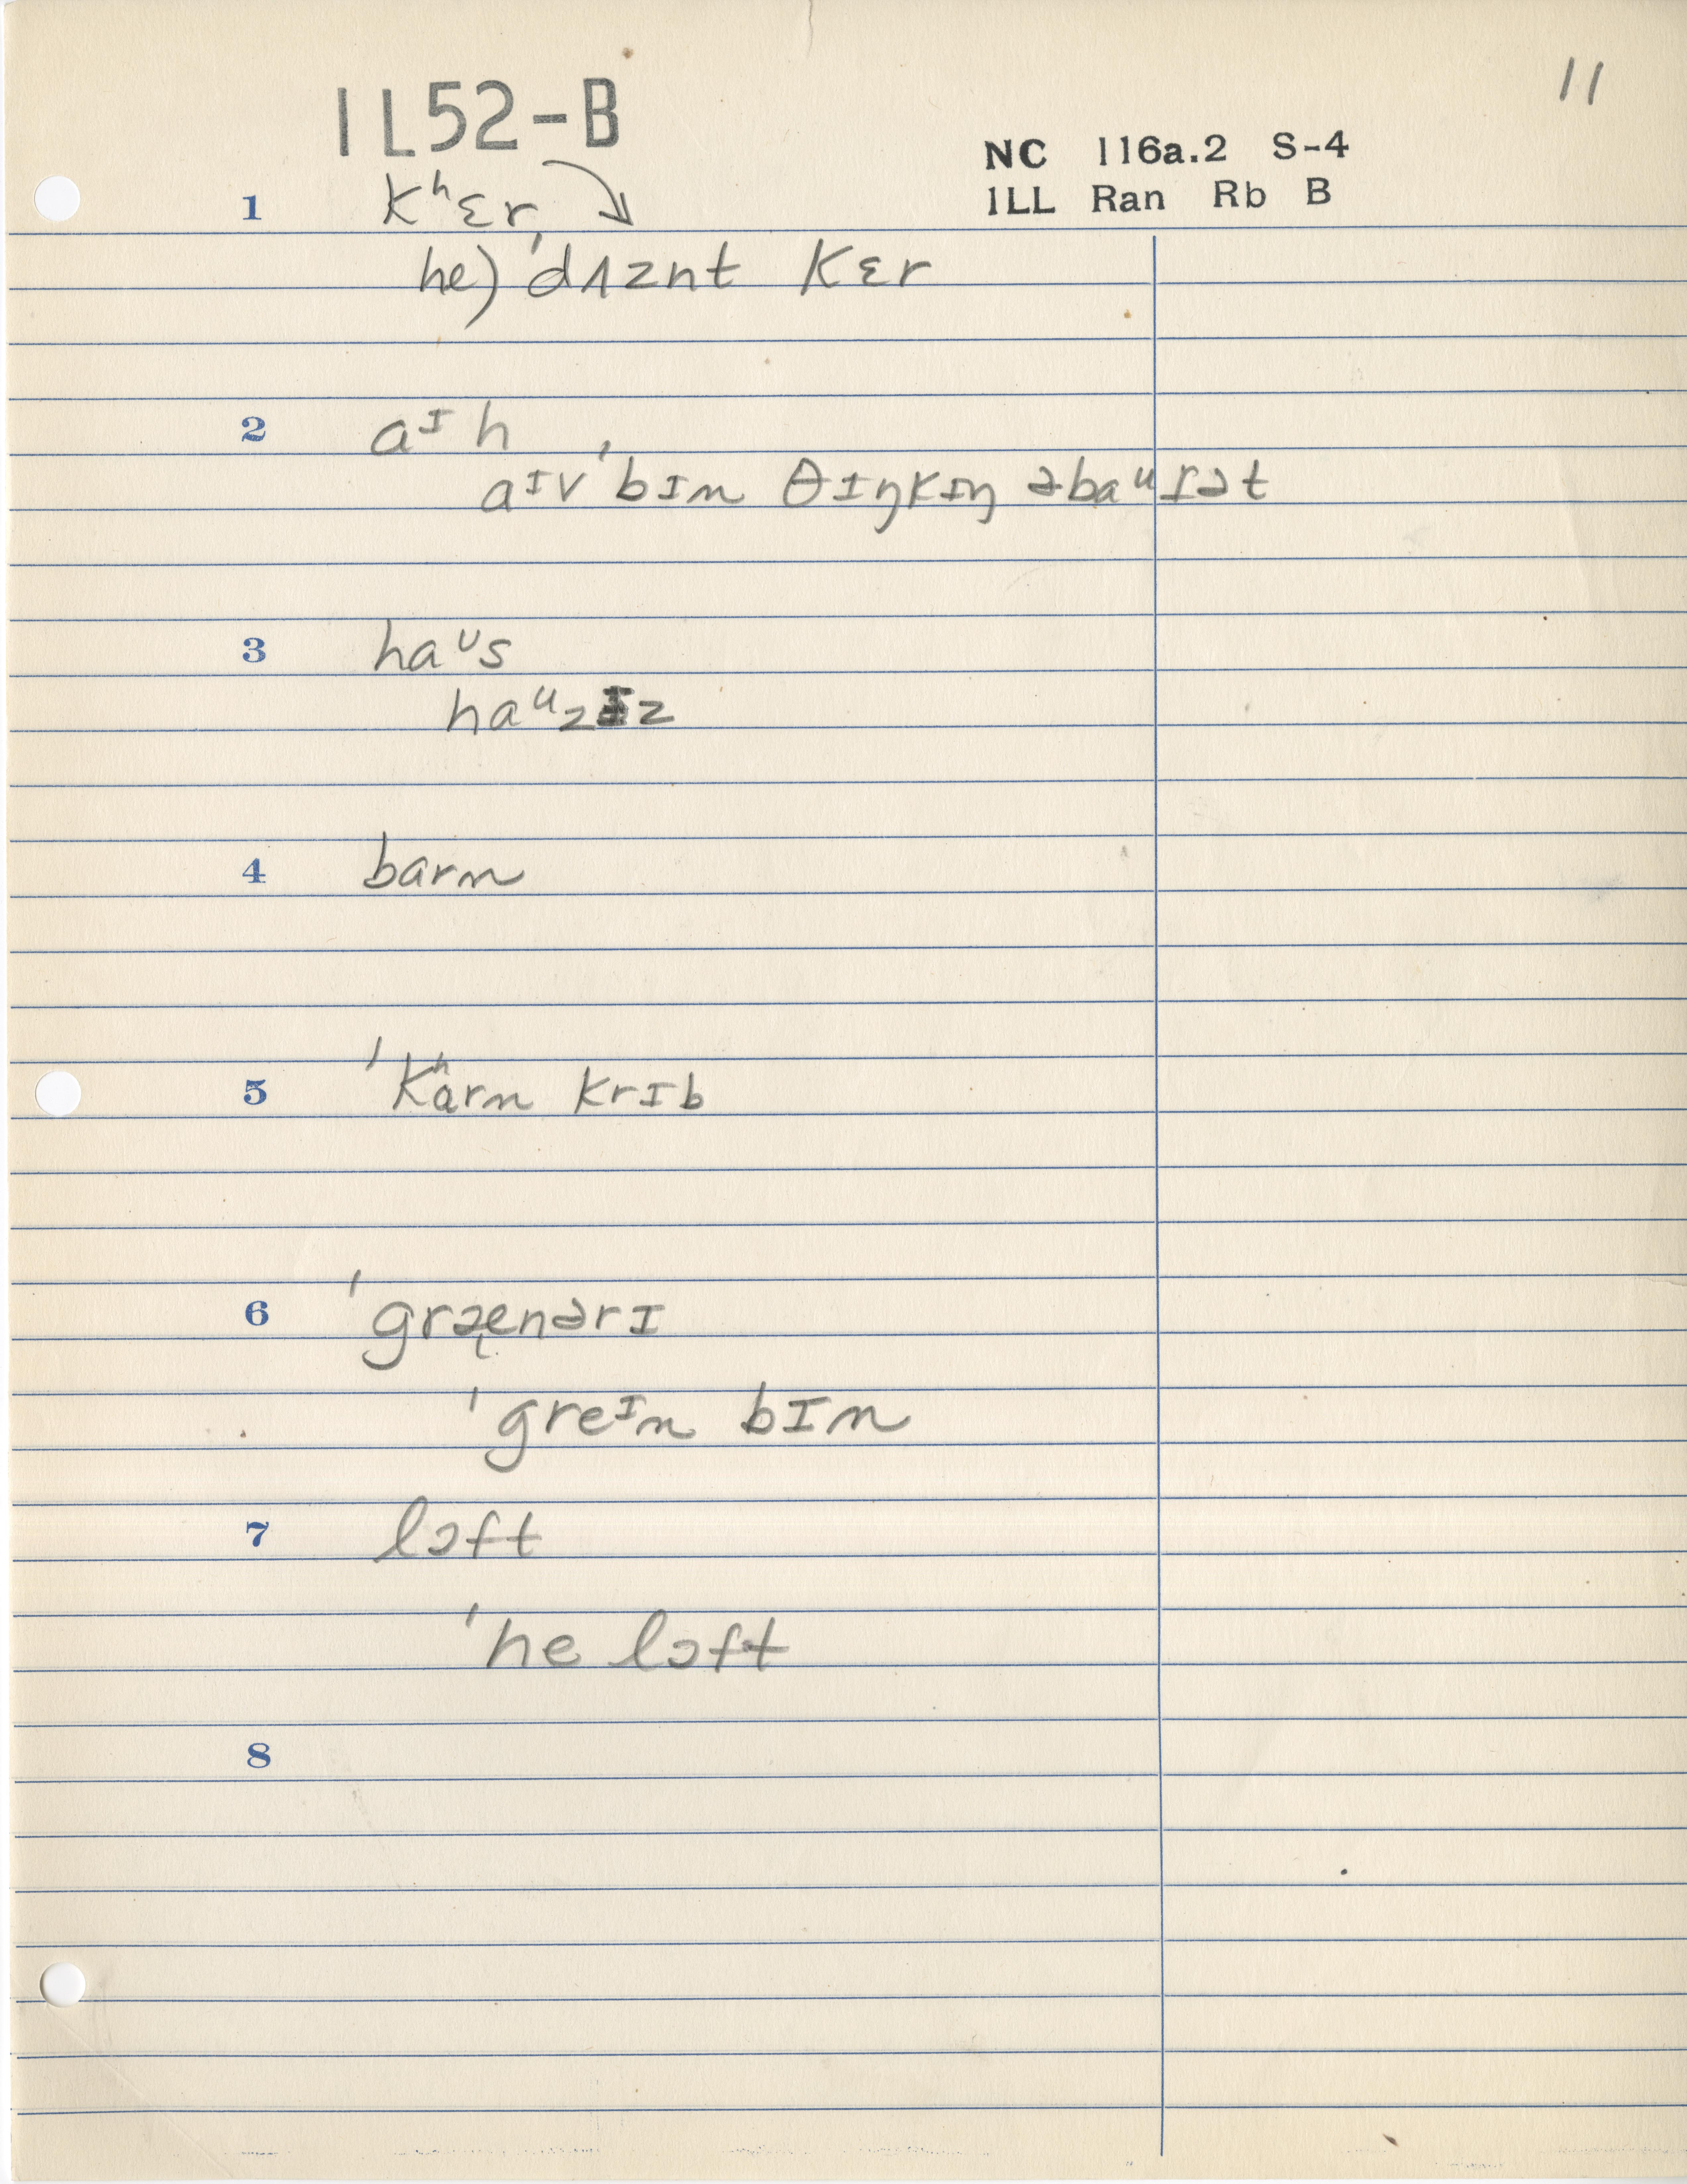 11
1L52-B
NC 116a.2 S-4
1LL Ran Rb B
1 kʰɛr
he) ˈdʌznt kɛr
2 aᶦ h
aᶦv ˈbɪn θɪŋkɪŋ əbaᵘɾət
3 haᵘs
haᵘzɪz
4 barn
5 ˈkʰɑrn krɪb
6 ˈgræ̨nərɪ
ˈgreᶦn bɪn
7 lɔft
ˈhe lɔft
8